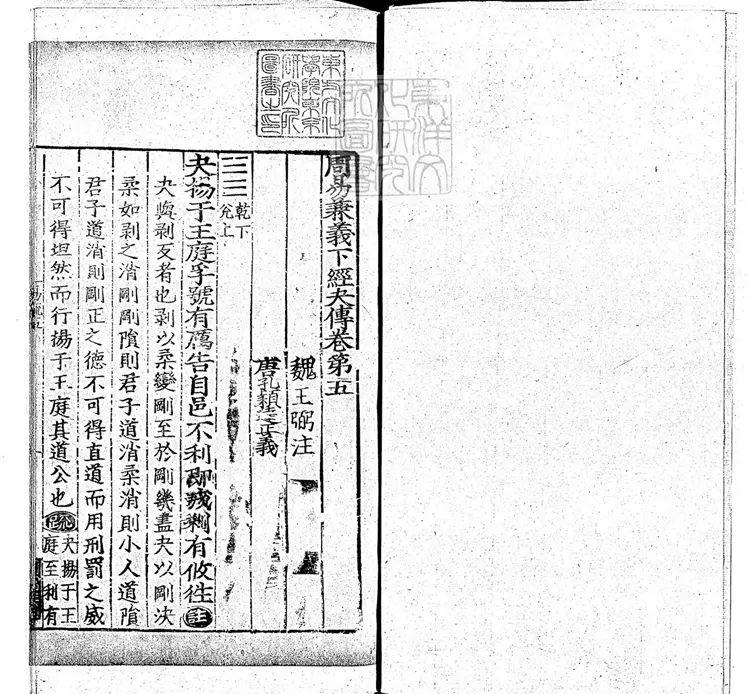 周易兼義下經夬傳卷第五
魏王弼注
唐孔穎達正義
乾下
兌上
夬揚于王庭孚號有厲告自邑不利即戎利有攸往註
夬與剥反者也剥以柔變剛至於剛幾盡夬以剛决
柔如剥之消剛剛隕則君子道消柔消則小人道隕
君子道消則剛正之德不可得直道而用刑罰之威
不可得坦然而行揚于王庭其道公也疏夬揚于王
庭至利有
東方文化
學院東京
研究所
圖書之印
東洋文
化研究
所圖書